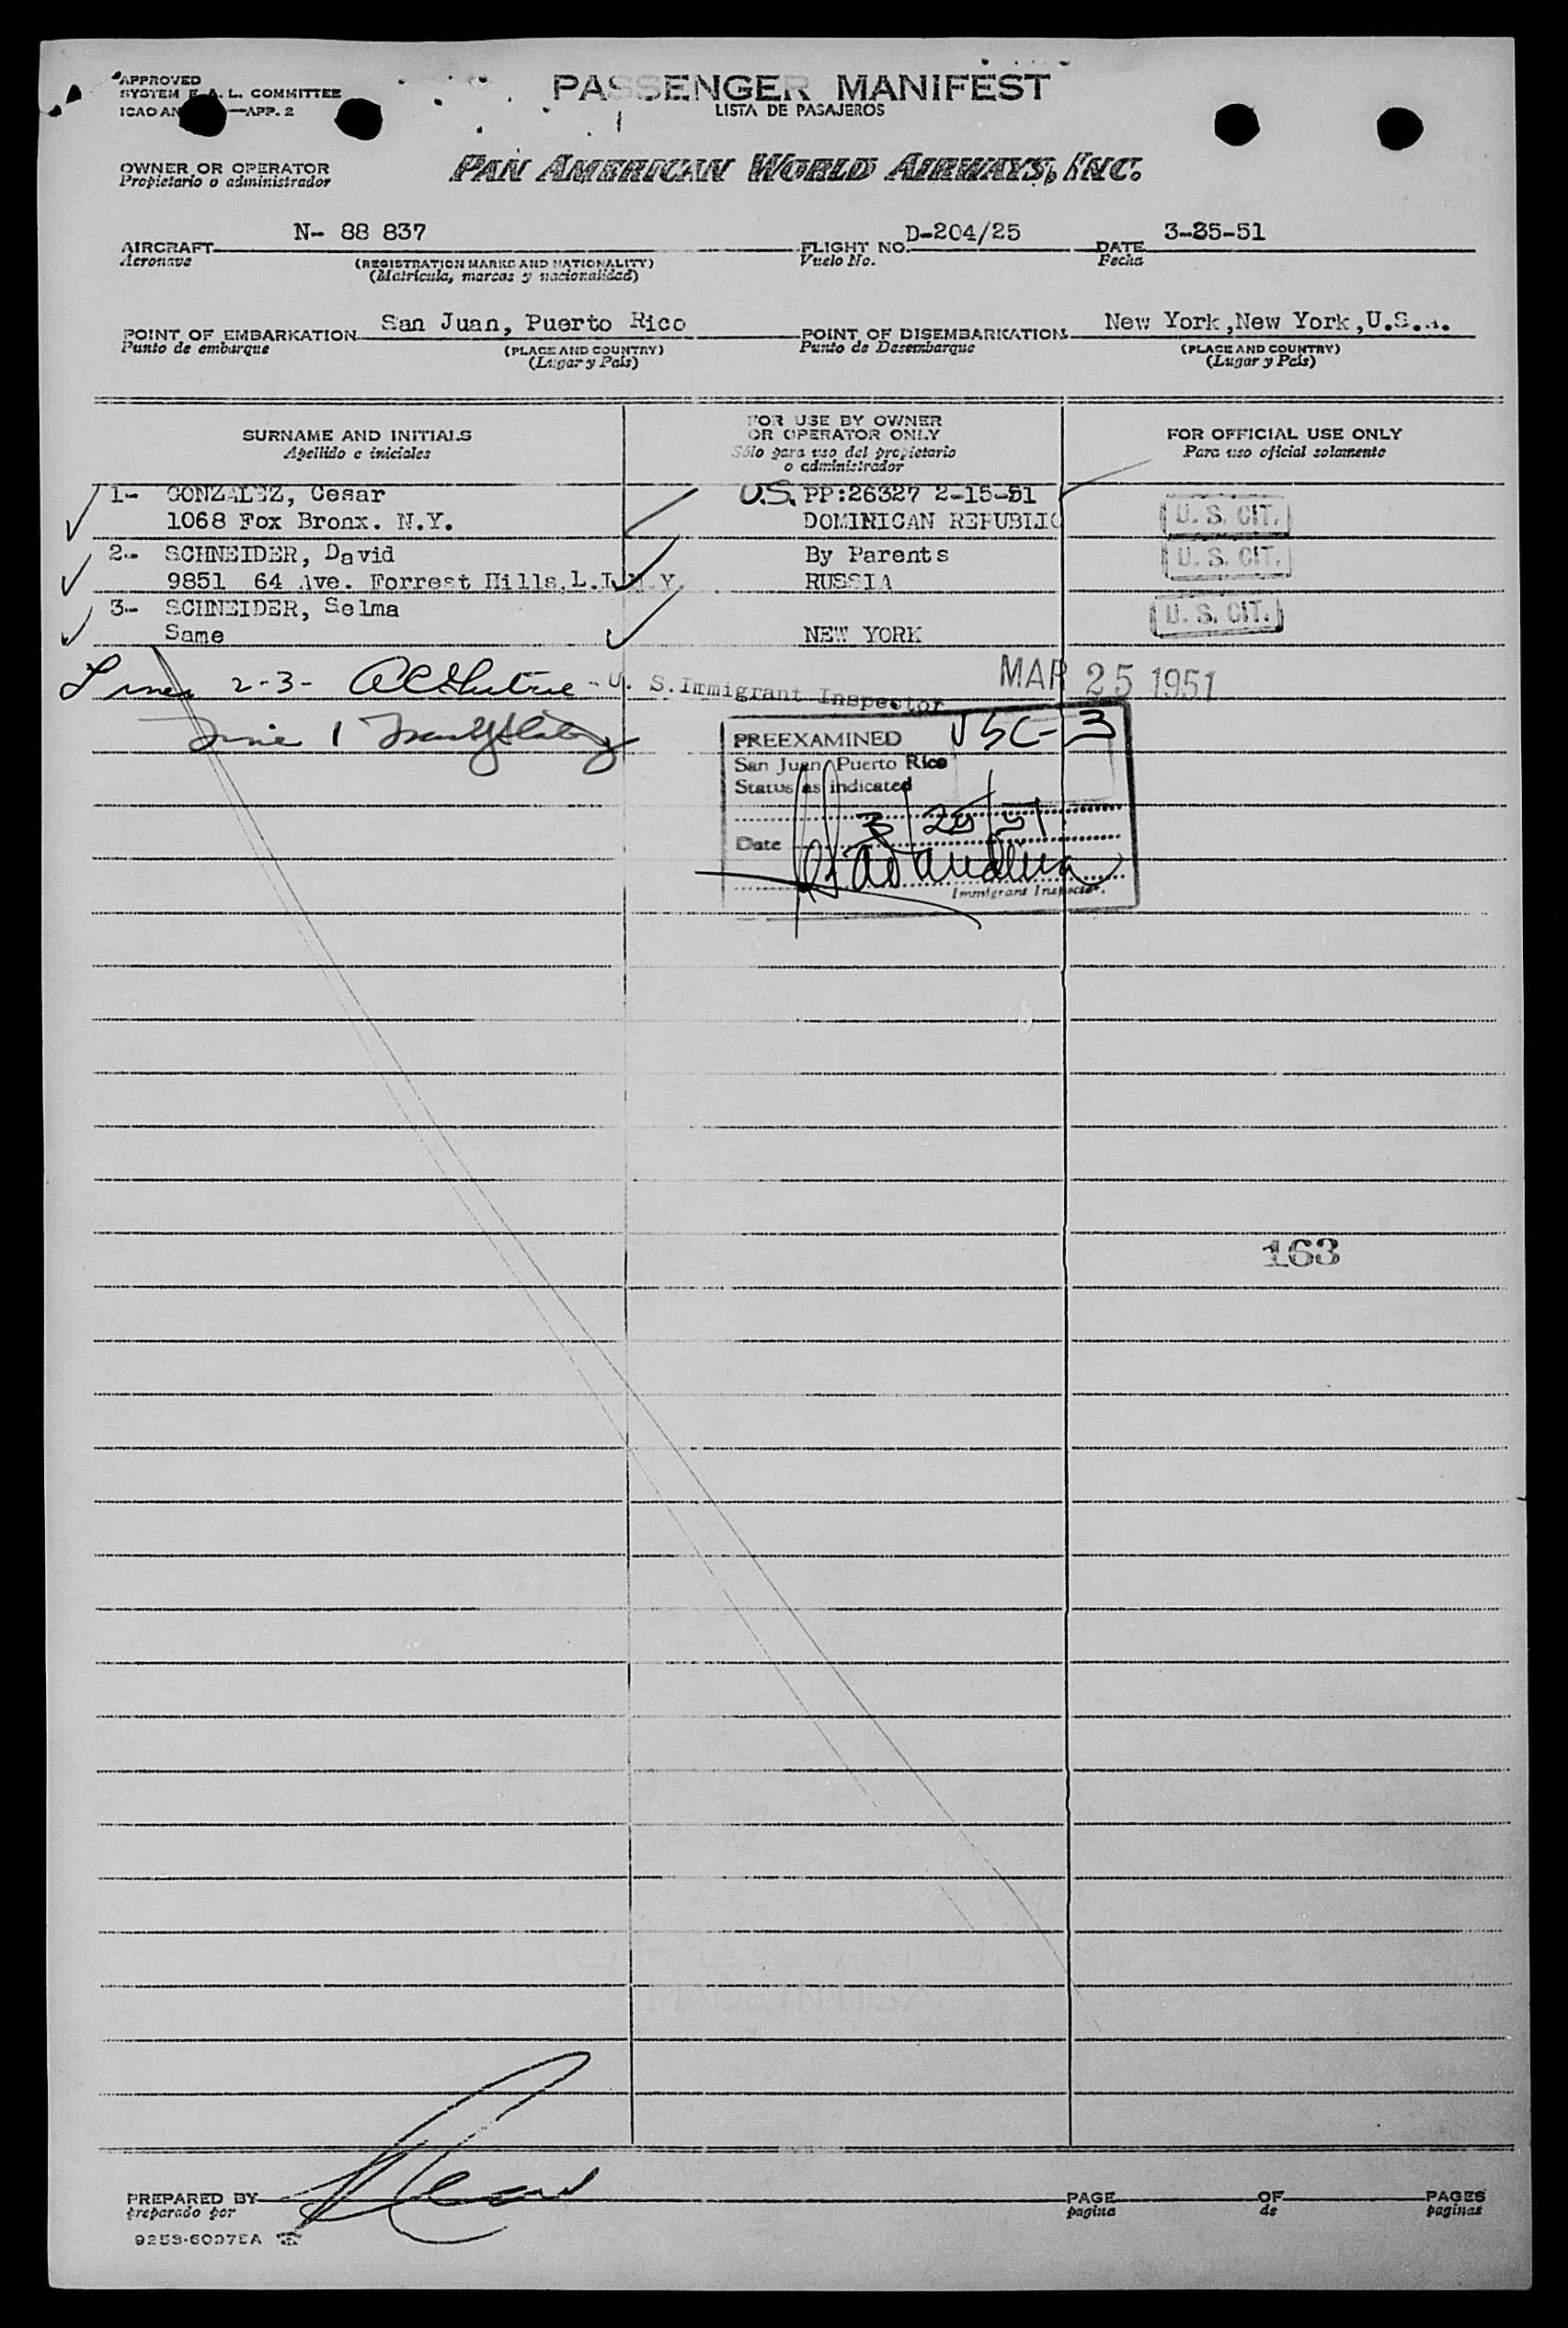 APPROVED
SYSTEM F. A. L. COMMITTEE
ICAO AN —APP. 2
PASSENGER MANIFEST
LISTA DE PASAJEROS
OWNER OR OPERATOR
Propietario o administrador
PAN AMERICAN WORLD AIRWAYS, INC.
AIRCRAFT N- 88 837 FLIGHT NO. D-204/25 DATE 3-25-51
Aeronave (REGISTRATION MARKS AND NATIONALITY) Vuelo No. Fecha
(Matricula, marcas y nacionalidad)
POINT OF EMBARKATION San Juan, Puerto Rico POINT OF DISEMBARKATION New York,New York,U.S.A.
Punto de embarque (PLACE AND COUNTRY) Punto de Desembarque (PLACE AND COUNTRY)
(Lugar y País) (Lugar y País)
SURNAME AND INITIALS FOR USE BY OWNER OR OPERATOR ONLY FOR OFFICIAL USE ONLY
Apellido e iniciales Sólo para uso del propietario o administrador Para uso oficial solamente
1- GONZALEZ, Cesar U.S. PP:26327 2-15-51
1068 Fox Bronx. N.Y. DOMINICAN REPUBLIC U. S. CIT.
2- SCHNEIDER, David By Parents U. S. CIT.
9851 64 Ave. Forrest Hills,L.I.N.Y. RUSSIA
3- SCHNEIDER, Selma U. S. CIT.
Same NEW YORK
Lines 2-3- U. S. Immigrant Inspector MAR 25 1951
Line 1
PREEXAMINED USC-3
San Juan Puerto Rico
Status as indicated
Date 3/25/51
Immigrant Inspector.
163
PREPARED BY PAGE OF PAGES
preparado por pagina de paginas
9253-60375A